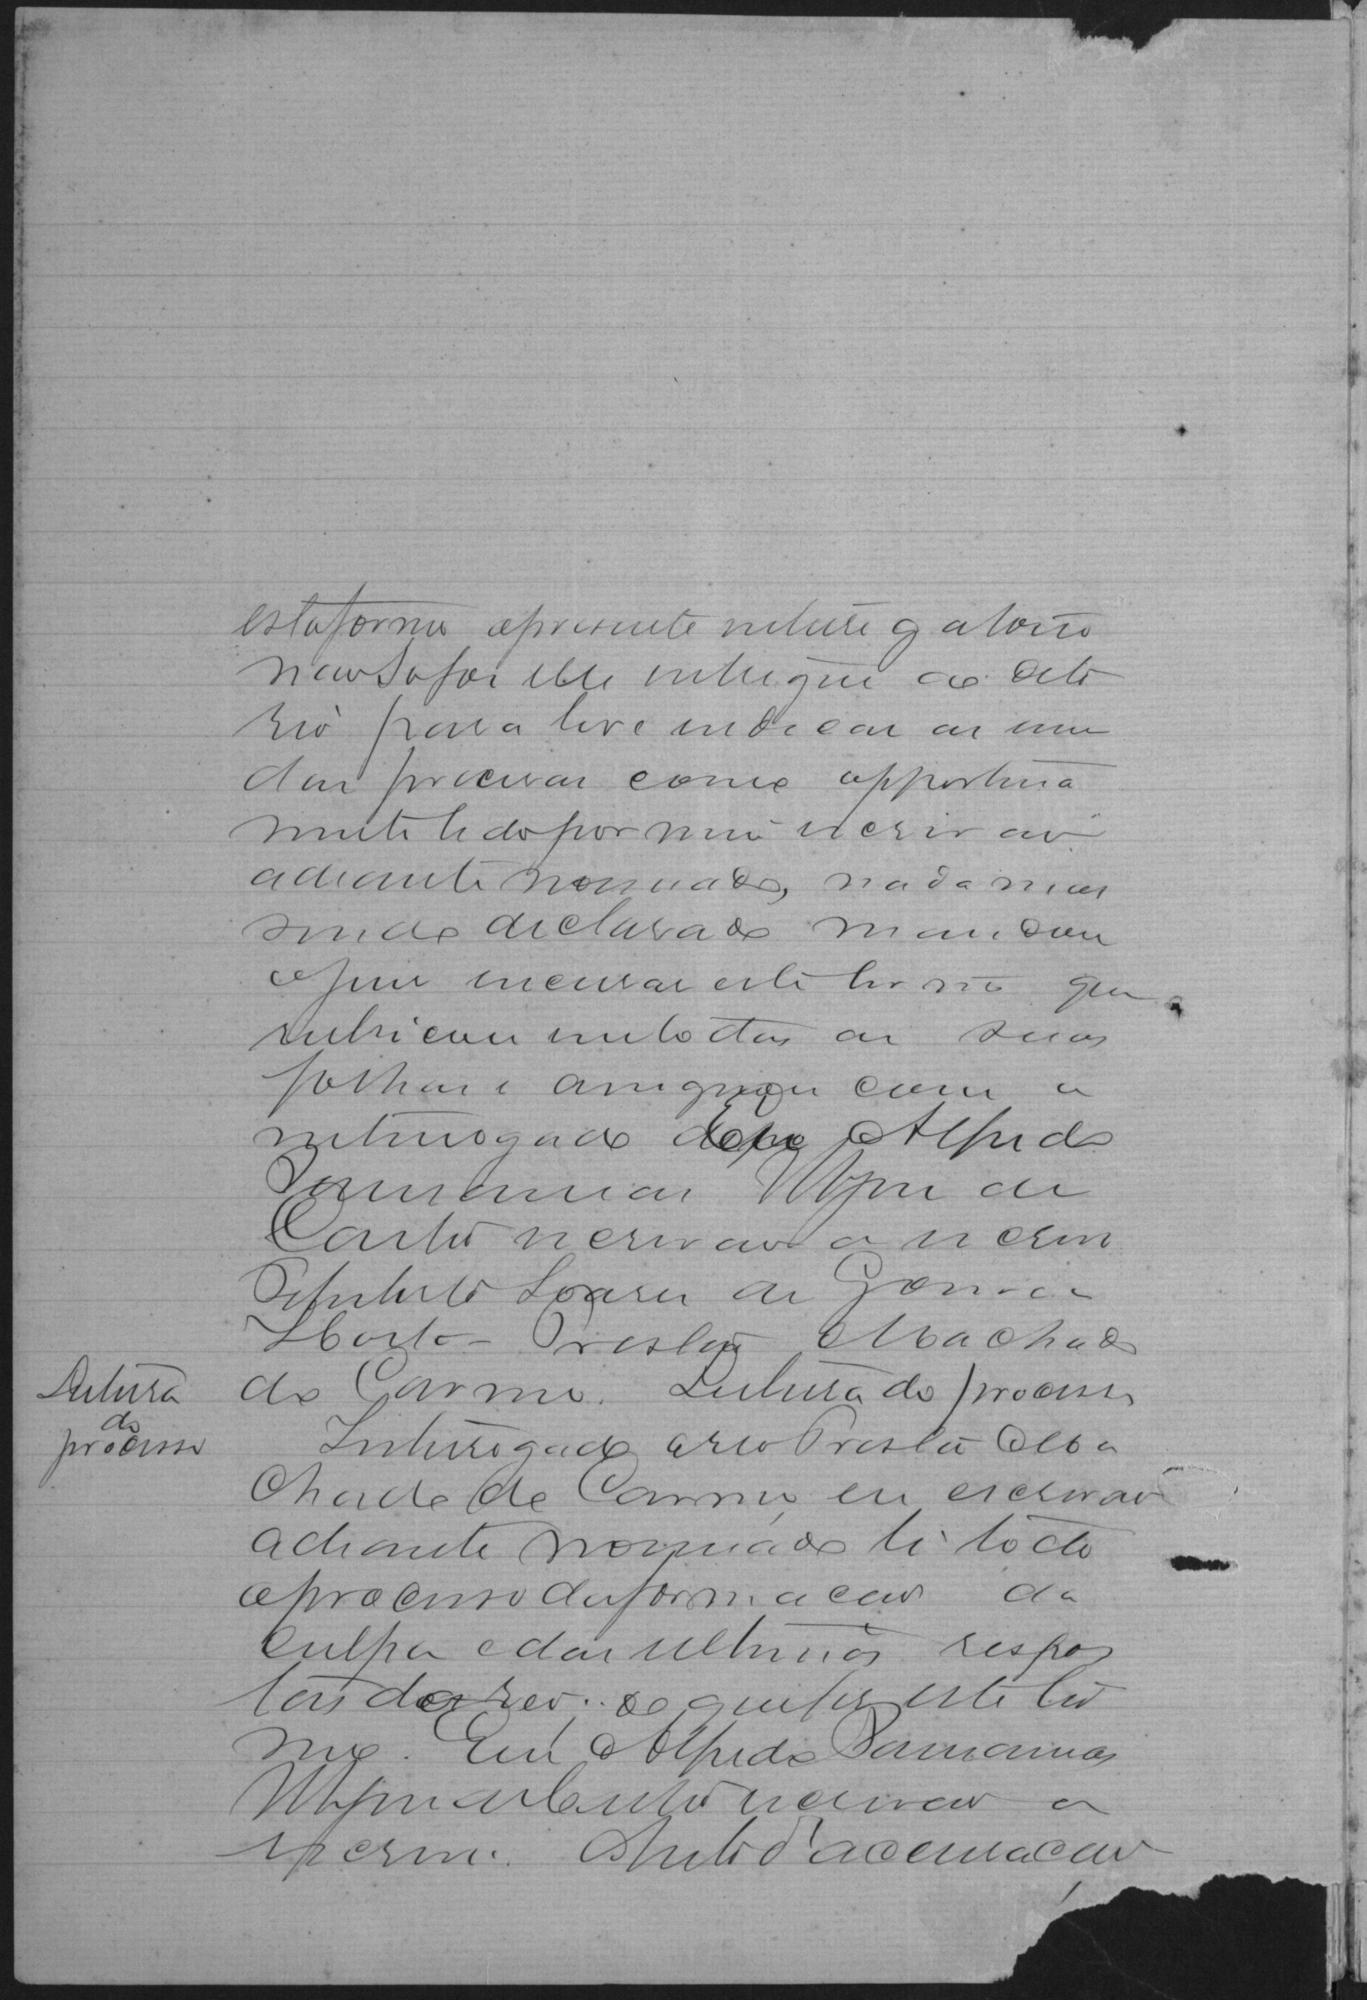 esta forma o presente interrogatorio
nando foi elle entregue ao dito
reo para
das procurar como opportuna
mente lido por mim escrivão
adiante nomeado, nada mais
sendo declarado mandou
o juiz encerrar este termo que
rubricou em todas as suas
folhas e assignou com o
interrogado do Eu Alfredo
Parnamas de
Couto escrivão o escrevi
Soares de Gouvea
Horta Preslau Machado
do Carmo. Leitura do processo
Leitura
do
processo
Interrogado o reo Preslau Ma
chado do Carmo, eu escrivão
adiante nomeado li todo
o processo da formação da
culpa e das ultimas respos
tas do reo: do que fiz este ter
mo. Eu Alfredo Parnamas
do Couto escrivão o
escrevi. Auto d'accusação